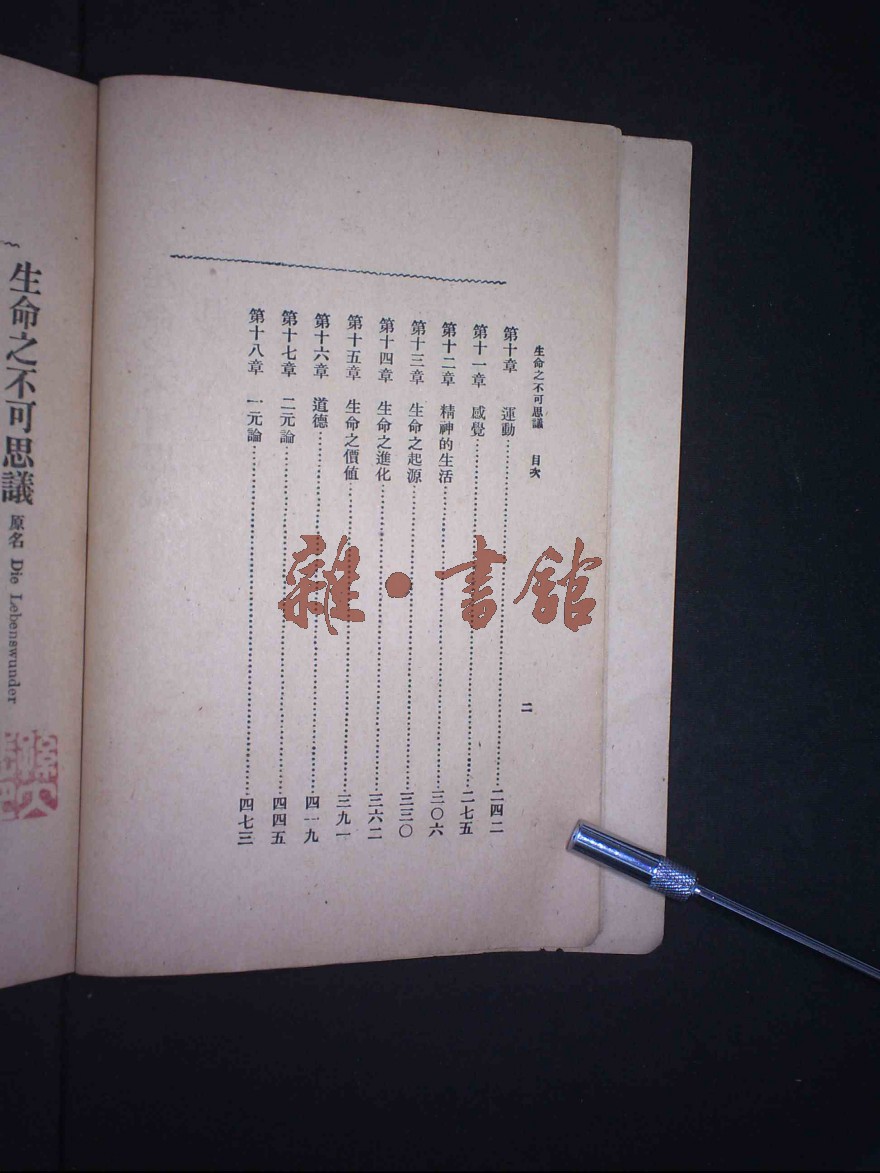 生命之不可思議　目次　二
第十章　運動……二四二
第十一章　感覺……二七五
第十二章　精神的生活……三〇六
第十三章　生命之起源……三三〇
第十四章　生命之進化……三六二
第十五章　生命之價値……三九一
第十六章　道德……四一九
第十七章　二元論……四四五
第十八章　一元論……四七三
生命之不可思議 原名 Die Lebenswunder
雜·書館